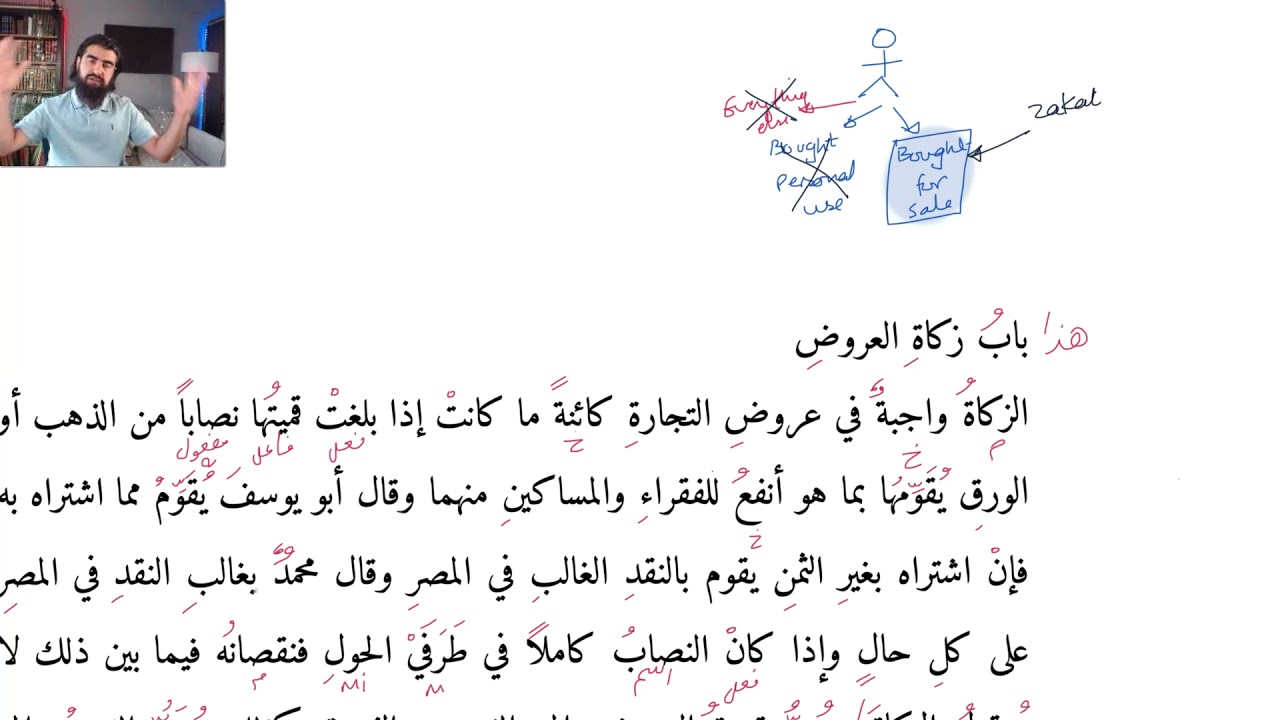 Everything
else
zakat
Bought
personal
use
Bought
for
sale
هذا بابُ زكاةِ العروضِ
الزكاةُ واجبةٌ في عروضِ التجارةِ كائنةً ما كانتْ إذا بلغتْ قميتُها نصاباً من الذهب أو
فعل فاعل مفعول
م خ ح
الورقِ يُقَوِّمُها بما هو أنفعُ للفقراءِ والمساكينِ منهما وقال أبو يوسفَ يُقَوَّمُ مما اشتراه به
خ
فإنْ اشتراه بغيرِ الثمنِ يقوم بالنقدِ الغالبِ في المصرِ وقال محمدٌ بغالبِ النقدِ في المصرِ
على كلِ حالٍ وإذا كانْ النصابُ كاملاً في طَرَفَيْ الحولِ فنقصانُه فيما بين ذلك لا
فعل اسم M Mi م